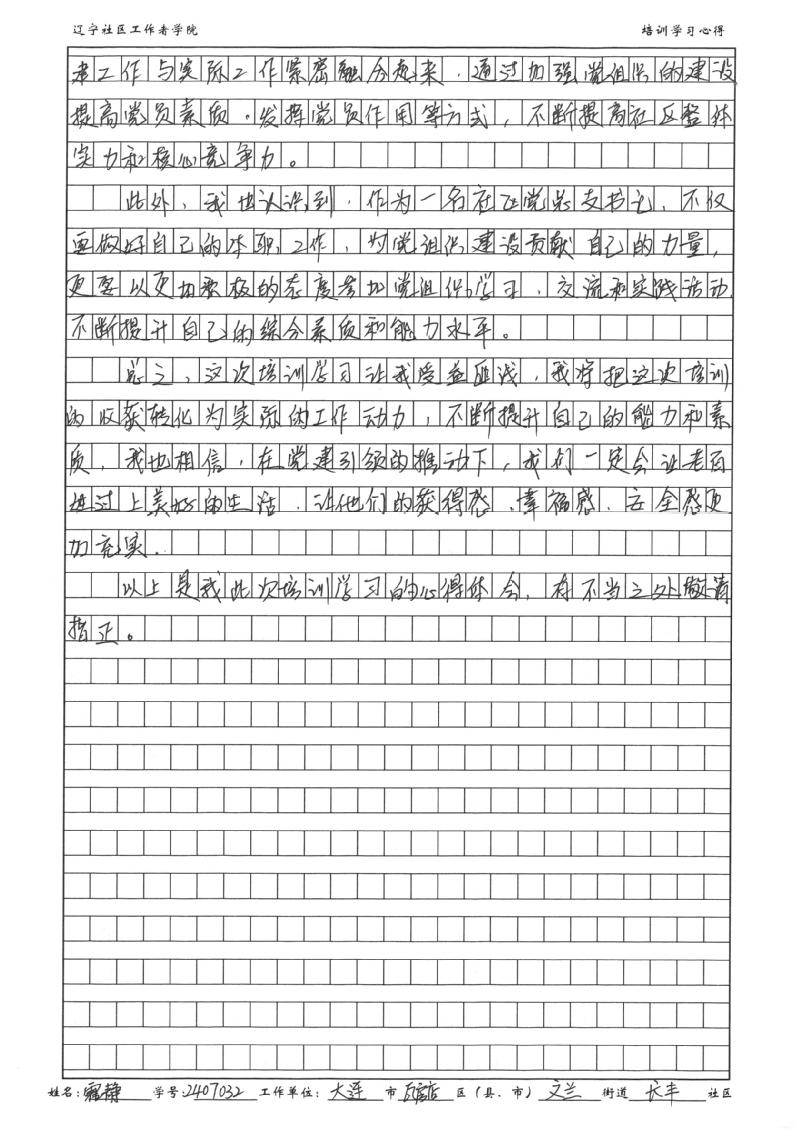 辽宁社区工作者学院 培训学习心得
建工作与实际工作紧密融合起来，通过加强党组织的建设
提高党员素质，发挥党员作用等方式，不断提高社区整体
实力和核心竞争力。
此外，我也认识到，作为一名社区党总支书记，不仅
要做好自己的本职工作，为党组织建设贡献自己的力量，
更要以更加积极的态度参加党组织学习、交流和实践活动，
不断提升自己的综合素质和能力水平。
总之，这次培训学习让我受益匪浅，我将把这次培训
的收获转化为实际的工作动力，不断提升自己的能力和素
质，我也相信，在党建引领的推动下，我们一定会让老百
姓过上美好的生活，让他们的获得感、幸福感、安全感更
加充实。
以上是我此次培训学习的心得体会，有不当之处敬请
指正。
姓名： 静 学号：2407032 工作单位： 大连 市 瓦房店 区（县、市） 文兰 街道 长丰 社区